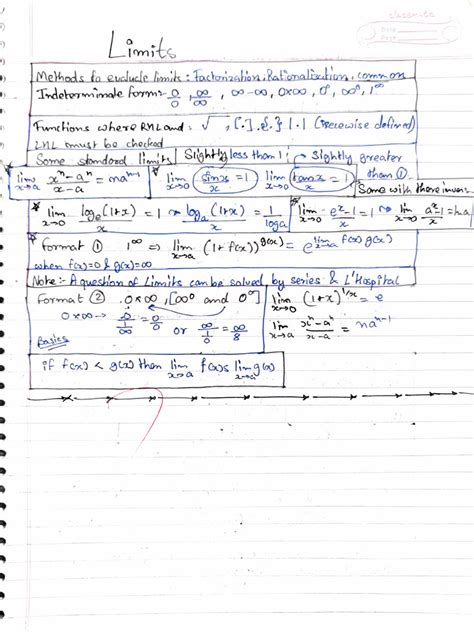 classmate
Date
Page
Limits
Methods to evaluate limits : Factorization, Rationalization, common
Indeterminate forms:- 0/0, ∞/∞, ∞-∞, 0×∞, 0⁰, ∞⁰, 1^∞
Functions where RHL and : √ , [.] , {.} |.| (piecewise defined)
LHL must be checked
Some standard limits | Slightly less than 1 : → Slightly greater than ①
lim x→a (xⁿ-aⁿ)/(x-a) = naⁿ⁻¹ lim x→0 sinx/x = 1 lim x→0 tanx/x = 1
Same with there inverse
* lim x→0 log_e(1+x)/x = 1 → log_a(1+x)/x = 1/log a lim x→0 (eˣ-1)/x = 1 → lim x→0 (aˣ-1)/x = ln a
* Format ① 1^∞ ⇒ lim x→a (1+f(x))^g(x) = e^(lim x→a f(x) g(x))
when f(x)=0 & g(x)=∞
Note :- A question of Limits can be solved by series & L'Hospital
Format ② 0×∞, [∞⁰ and 0⁰] lim x→0 (1+x)^(1/x) = e
0×∞ → 0/(1/∞) = 0/0 or ∞/(1/0) = ∞/∞ lim x→a (xⁿ-aⁿ)/(x-a) = naⁿ⁻¹
Basics
if f(x) < g(x) then lim x→a f(x) ≤ lim x→a g(x)